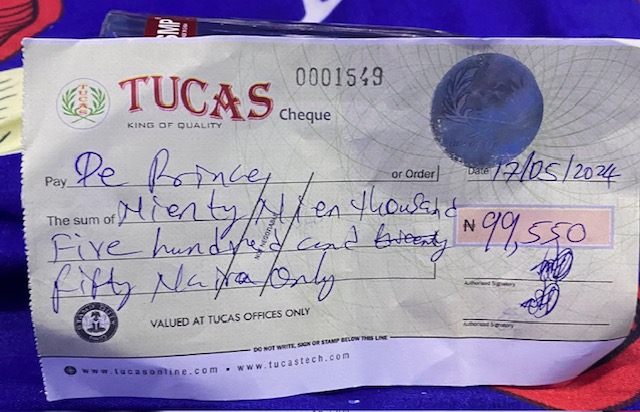 SMP
0001549
TUCAS
TUCAS Cheque
KING OF QUALITY
Pay De Prince or Order Date 17/05/2024
The sum of Nienty Nien thousand
₦ 99,550
Five hundred and twenty
fifty Naira Only
NOT NEGOTIABLE
Authorised Signatory
Authorised Signatory
VALUED AT TUCAS OFFICES ONLY
DO NOT WRITE, SIGN OR STAMP BELOW THIS LINE
www.tucasonline.com • www.tucastech.com